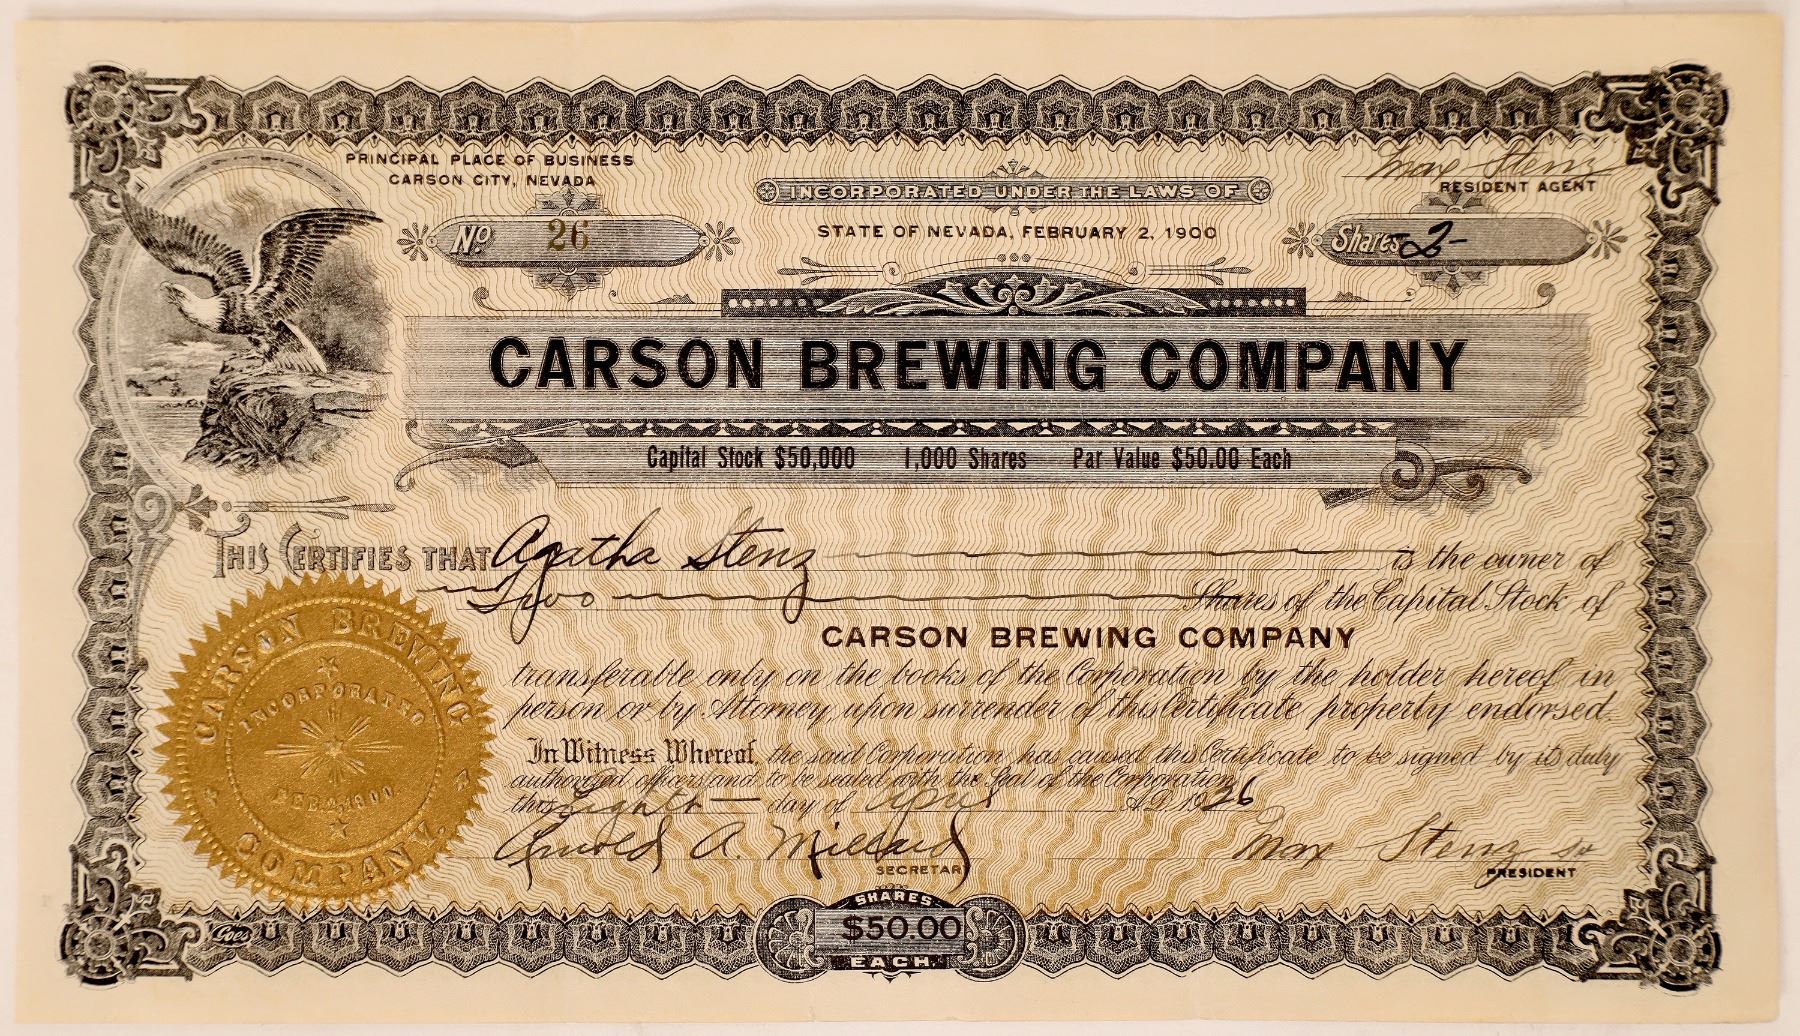 PRINCIPAL PLACE OF BUSINESS
CARSON CITY, NEVADA
Max Stenz
RESIDENT AGENT
INCORPORATED UNDER THE LAWS OF
STATE OF NEVADA, FEBRUARY 2, 1900
No 26
Shares 2-
CARSON BREWING COMPANY
Capital Stock $50,000 1,000 Shares Par Value $50.00 Each
THIS CERTIFIES THAT Agatha Stenz is the owner of
Two Shares of the Capital Stock of
CARSON BREWING COMPANY
transferable only on the books of the Corporation by the holder hereof in
person or by Attorney, upon surrender of this Certificate properly endorsed.
In Witness Whereof, the said Corporation has caused this Certificate to be signed by its duly
authorized officers and to be sealed with the Seal of the Corporation
this Eighth day of April A.D. 1926
Arnold A. Millard
SECRETARY
Max Stenz Sr
PRESIDENT
CARSON BREWING
COMPANY.
INCORPORATED
FEB. 2, 1900.
Goes
SHARES
$50.00
EACH.